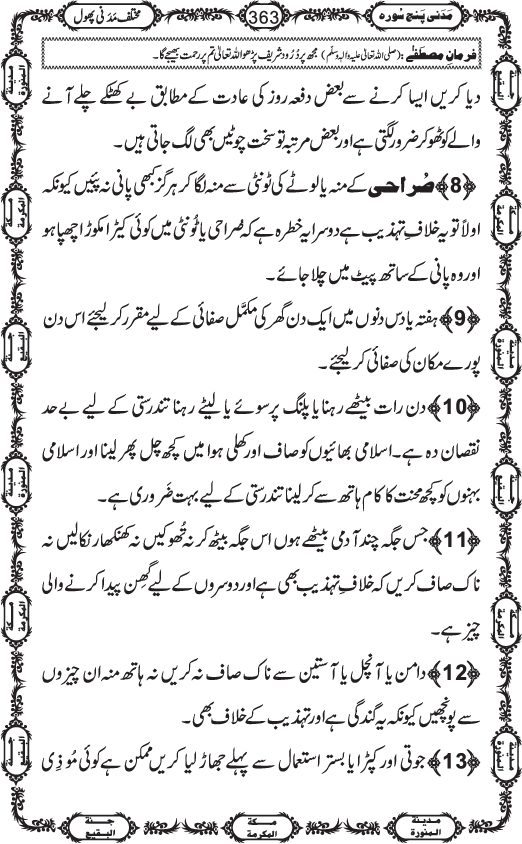 مَدَنی پنج سورہ
363
مختلف مَدَنی پھول
فرمانِ مصطَفٰے : (صلی اللہ تعالیٰ علیہ والہ وسلّم) مجھ پر دُرُود شریف پڑھو اللہ تعالیٰ تم پر رحمت بھیجے گا۔
دیا کریں ایسا کرنے سے بعض دفعہ روز کی عادت کے مطابق بے کھٹکے چلے آنے
والے کو ٹھوکر ضرور لگتی ہے اور بعض مرتبہ تو سخت چوٹیں بھی لگ جاتی ہیں۔
﴿8﴾ صُراحی کے منہ یا لوٹے کی ٹونٹی سے منہ لگا کر ہرگز کبھی پانی نہ پئیں کیونکہ
اولاً تو یہ خلافِ تہذیب ہے دوسرا یہ خطرہ ہے کہ صُراحی یا ٹُونٹی میں کوئی کیڑا مکوڑا چھپا ہو
اور وہ پانی کے ساتھ پیٹ میں چلا جائے۔
﴿9﴾ ہفتہ یا دس دنوں میں ایک دن گھر کی مکمَّل صفائی کے لیے مقرر کر لیجئے اس دن
پورے مکان کی صفائی کر لیجئے۔
﴿10﴾ دن رات بیٹھے رہنا یا پلنگ پر سوئے یا لیٹے رہنا تندرستی کے لیے بے حد
نقصان دہ ہے۔ اسلامی بھائیوں کو صاف اور کھلی ہوا میں کچھ چل پھر لینا اور اسلامی
بہنوں کو کچھ محنت کا کام ہاتھ سے کر لینا تندرستی کے لیے بہت ضَروری ہے۔
﴿11﴾ جس جگہ چند آدمی بیٹھے ہوں اس جگہ بیٹھ کر نہ تُھوکیں نہ کھنکھار نکالیں نہ
ناک صاف کریں کہ خلافِ تہذیب بھی ہے اور دوسروں کے لیے گِھن پیدا کرنے والی
چیز ہے۔
﴿12﴾ دامن یا آنچل یا آستین سے ناک صاف نہ کریں نہ ہاتھ منہ ان چیزوں
سے پونچھیں کیونکہ یہ گندگی ہے اور تہذیب کے خلاف بھی۔
﴿13﴾ جوتی اور کپڑا یا بستر استعمال سے پہلے جھاڑ لیا کریں ممکن ہے کوئی مُوذِی
مدینة المنورة
جنة البقيع
مكة المكرمة
مكة المكرمة
جنة البقيع
مدينة المنورة
مدينة المنورة
جنة البقيع
مكة المكرمة
مكة المكرمة
جنة البقيع
مدينة المنورة
جنة البقيع
مكة المكرمة
مدينة المنورة